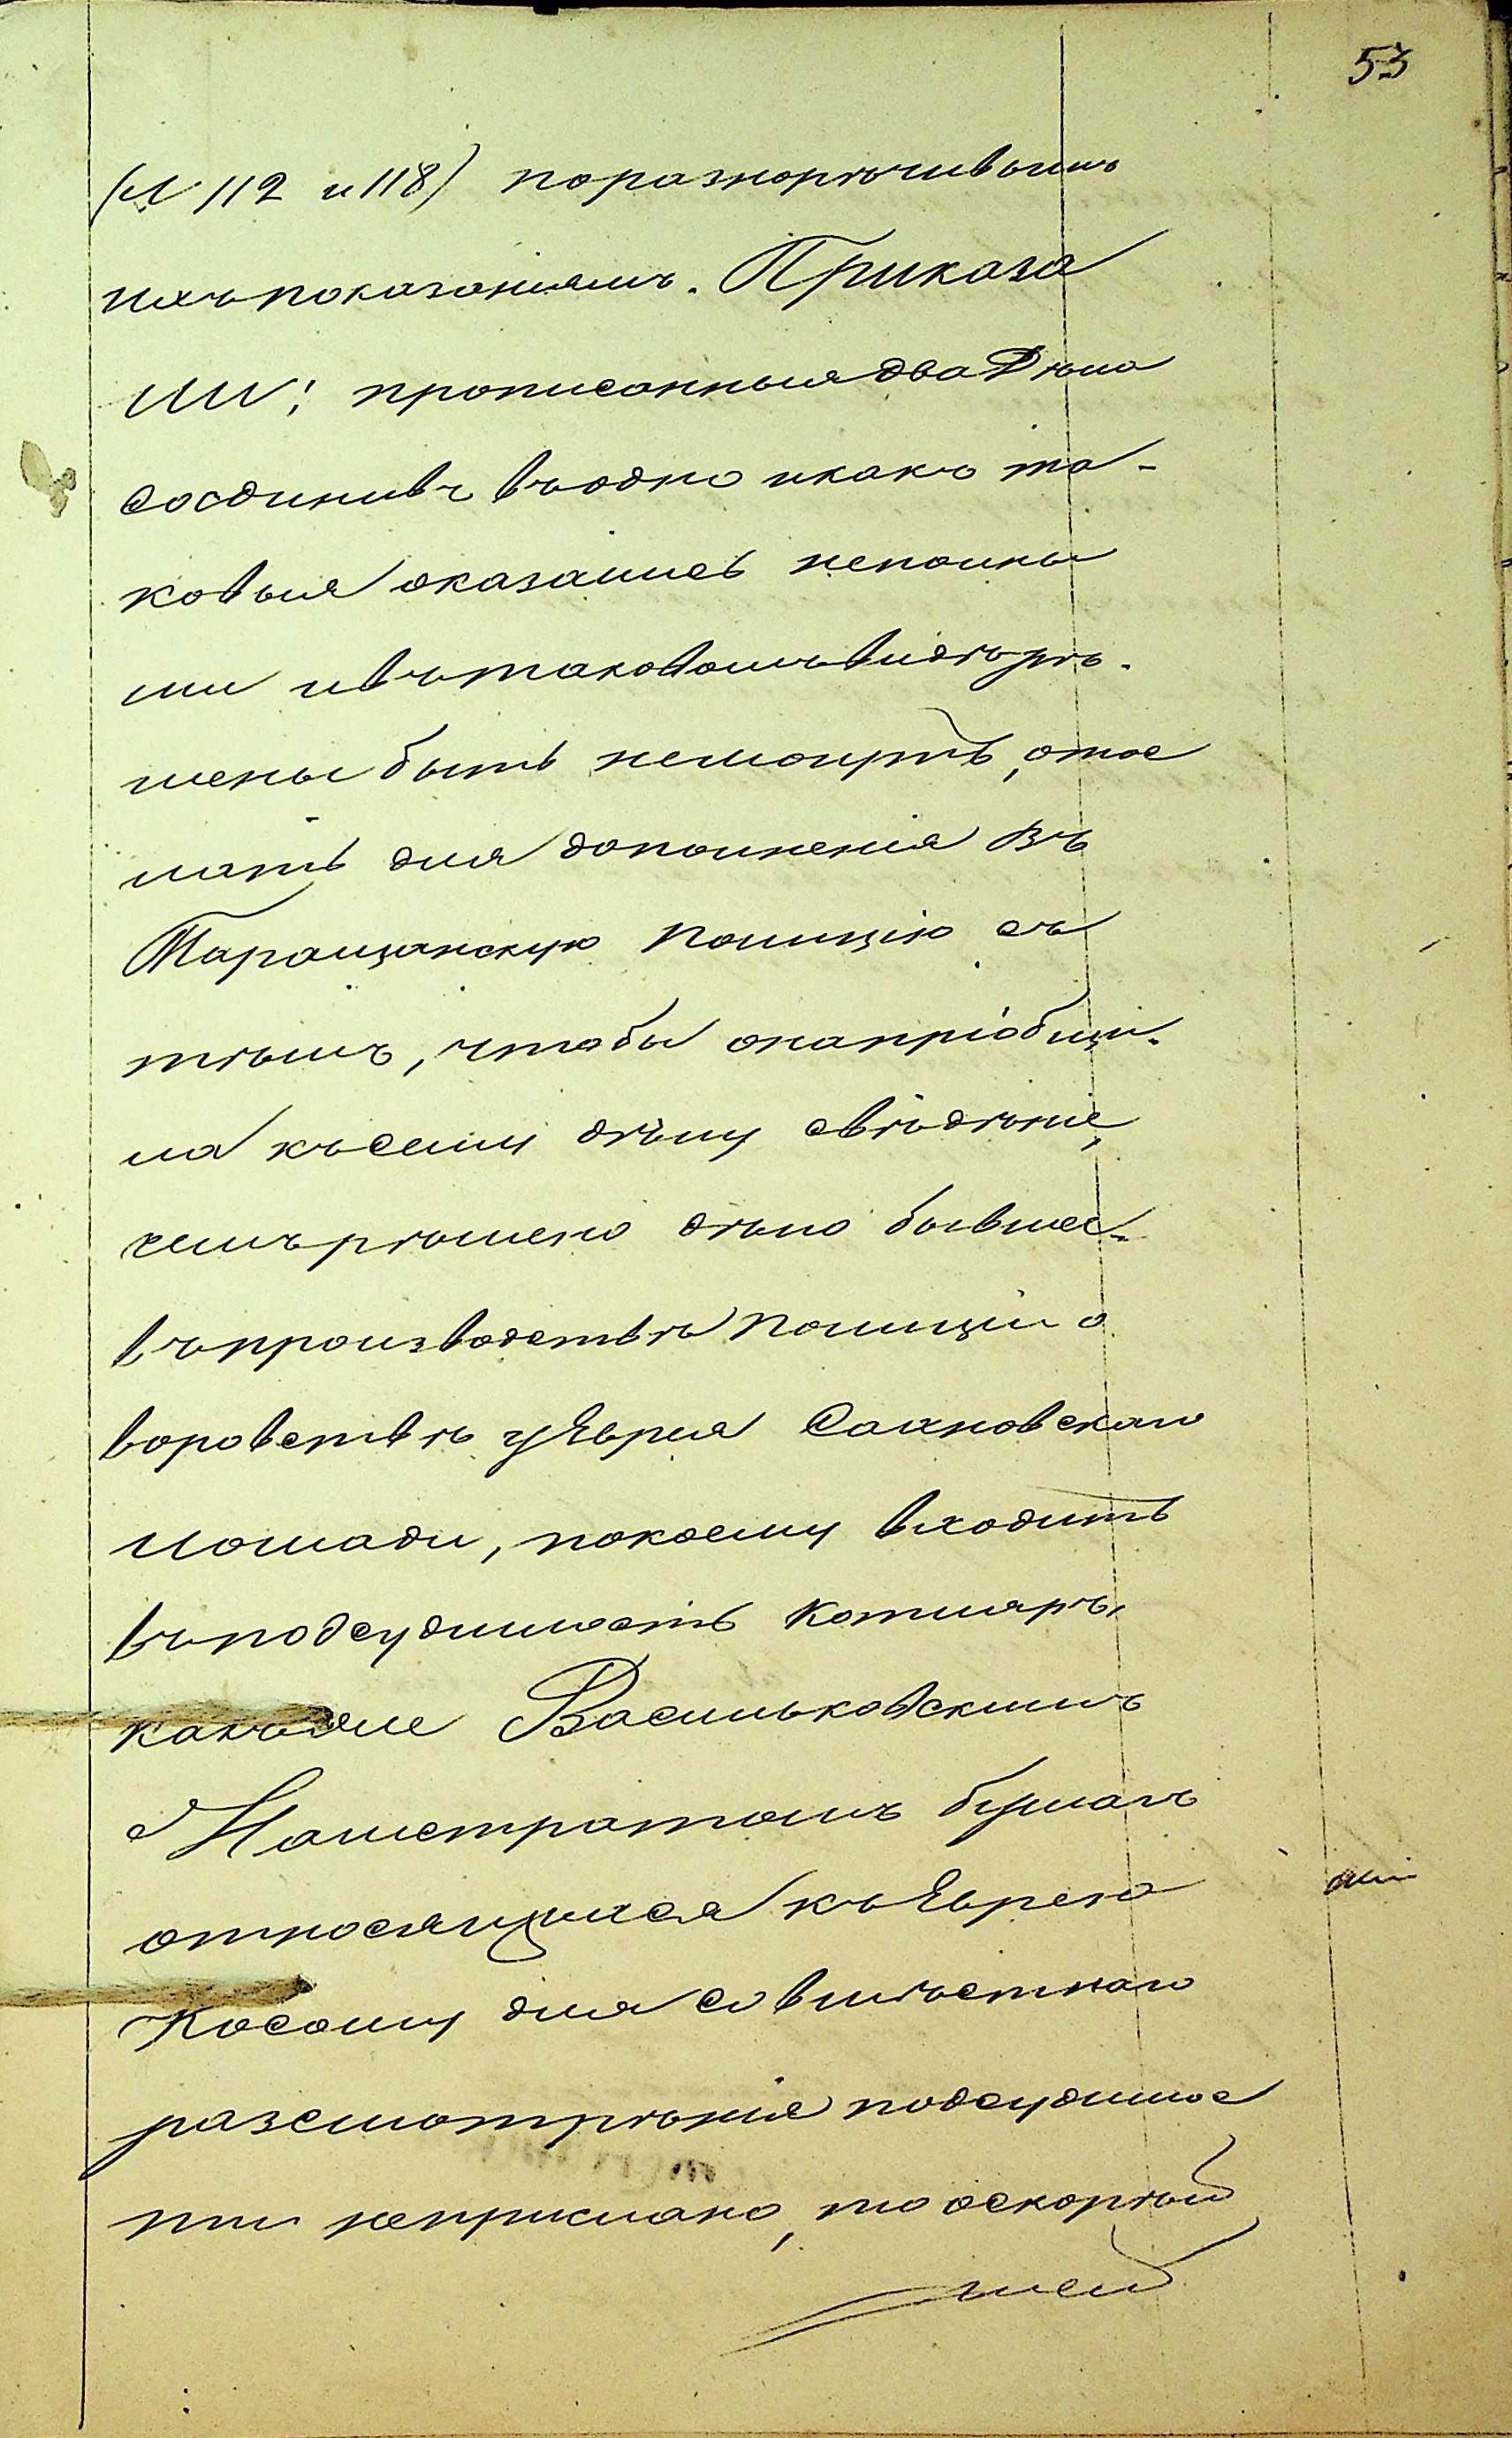 53
(Л 112 и 118) поразнорѣчивымъ
ихъ показаніямъ. Приказа
ли: прописанныя два Дѣла
соединивъ въ одно и какъ та-
ковыя оказались неполны
ми и въ таковомъ видѣ рѣ-
шены быть не могутъ, отос
лать для дополненія въ
Таращанскую Полицію съ
тѣмъ, чтобы она пріобщи-
ла къ сему дѣлу свѣдѣніе,
чемъ рѣшено дѣло бывшее
въ производствѣ Полиціи о
воровствѣ у Еврея Сахновскаго
лошади, по коему входитъ
въ подсудимость Котляръ,
какъ же Васильковскимъ
Магистратомъ бумагъ
относящихся къ Еврею
Косому для совмѣстнаго
разсмотрѣнія подсудимос
ти неприслано, то о скорѣй
шей